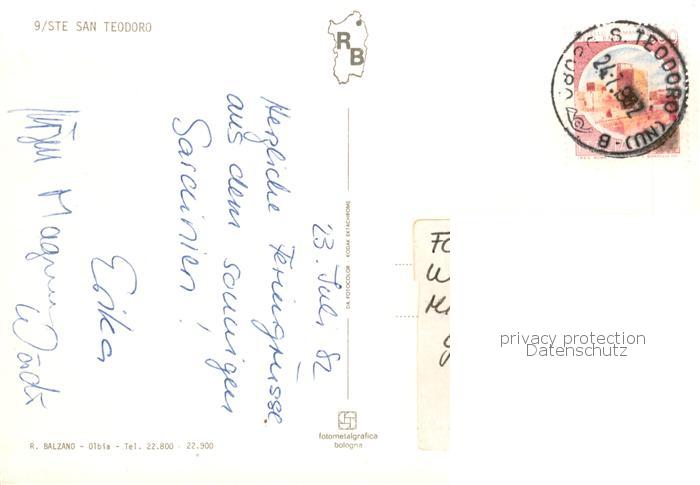 9/STE SAN TEODORO
R B
08020 S. TEODORO (NU) - B
24.7.1982
23. Juli 82
Herzliche Feriengrüsse
aus dem sonnigen
Sardinien!
Erika
Magnus
DA FOTOCOLOR - KODAK EKTACHROME
privacy protection
Datenschutz
fotometalgrafica
bologna
R. BALZANO - Olbia - Tel. 22.800 - 22.900